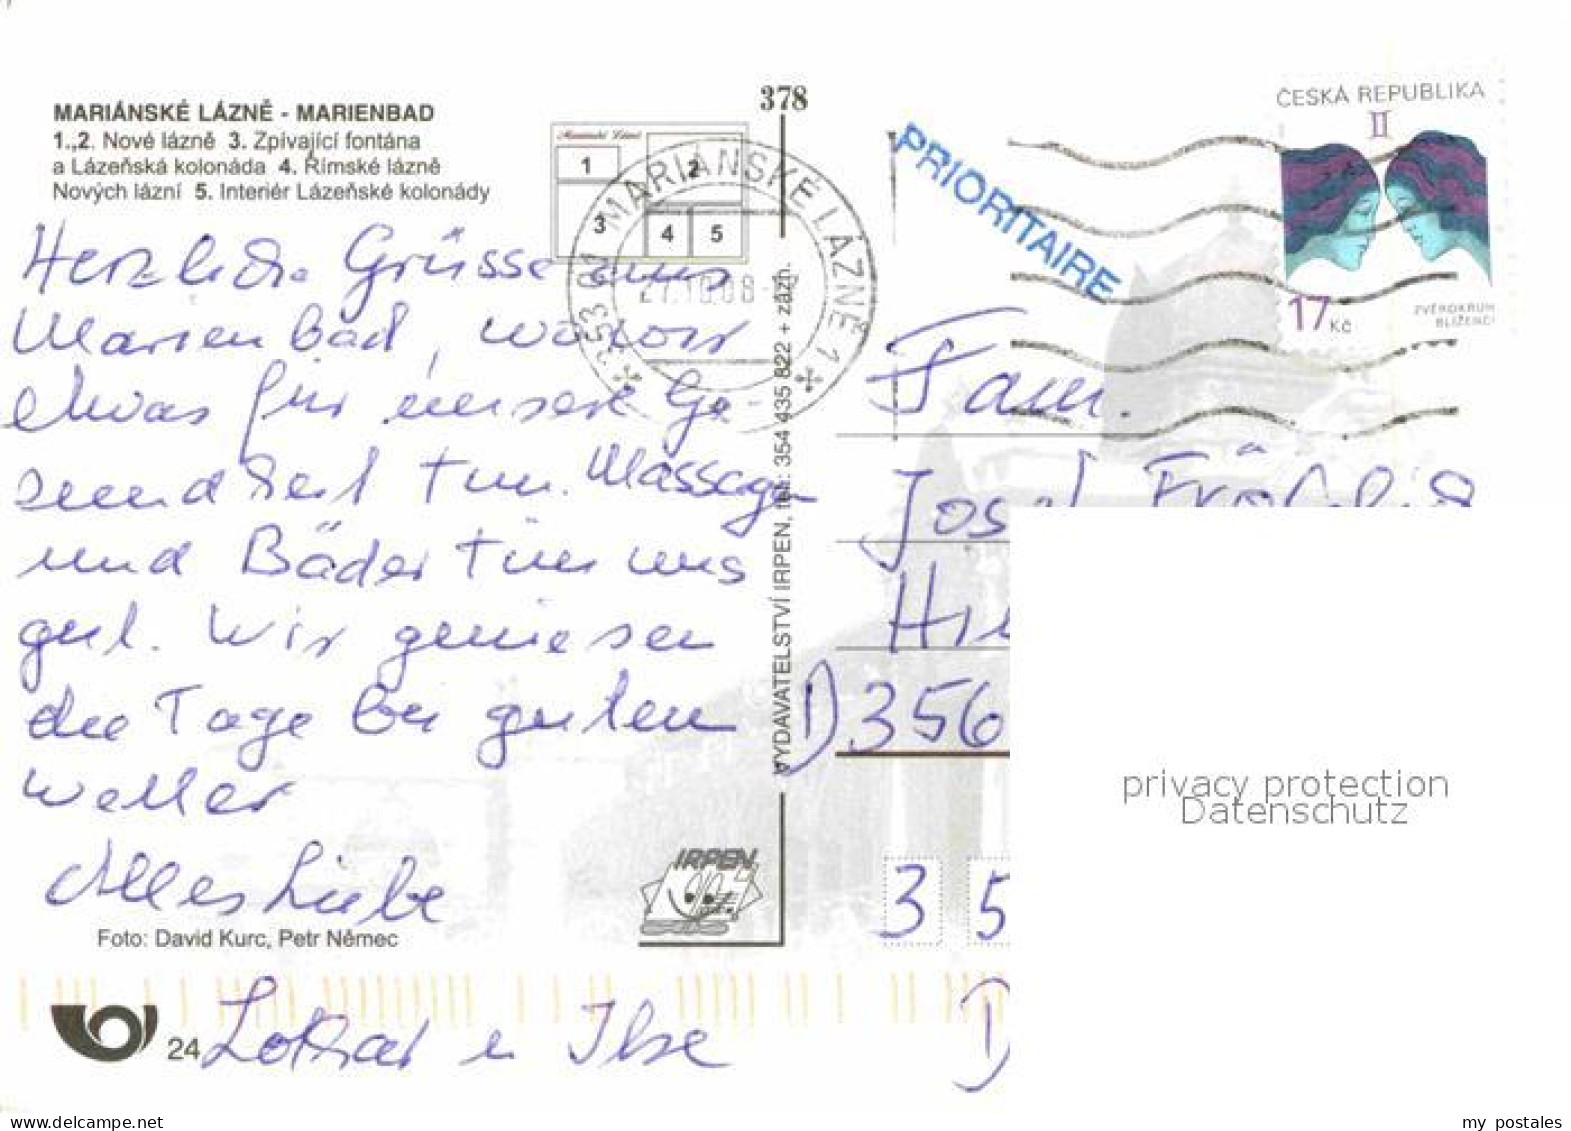 MARIÁNSKÉ LÁZNĚ - MARIENBAD
1.,2. Nové lázně 3. Zpívající fontána
a Lázeňská kolonáda 4. Římské lázně
Nových lázní 5. Interiér Lázeňské kolonády
Mariánské Lázně
1
2
3
4
5
378
353 01 MARIÁNSKÉ LÁZNĚ 1
27.10.08
PRIORITAIRE
ČESKÁ REPUBLIKA
II
17 Kč
ZVĚROKRUH
BLÍŽENCI
Herzliche Grüsse aus
Marienbad, wo wir
etwas für unsere Ge-
sundheit tun. Massagen
und Bäder tun uns
gut. Wir geniesen
die Tage bei guten
Wetter
Alles Liebe
Lothar u Ilse
VYDAVATELSTVÍ IRPEN, tel.: 354 435 822 + zázn.
Fam.
Josef Fröhlich
D 356
3 5
D
privacy protection
Datenschutz
IRPEN
Foto: David Kurc, Petr Němec
24
my postales